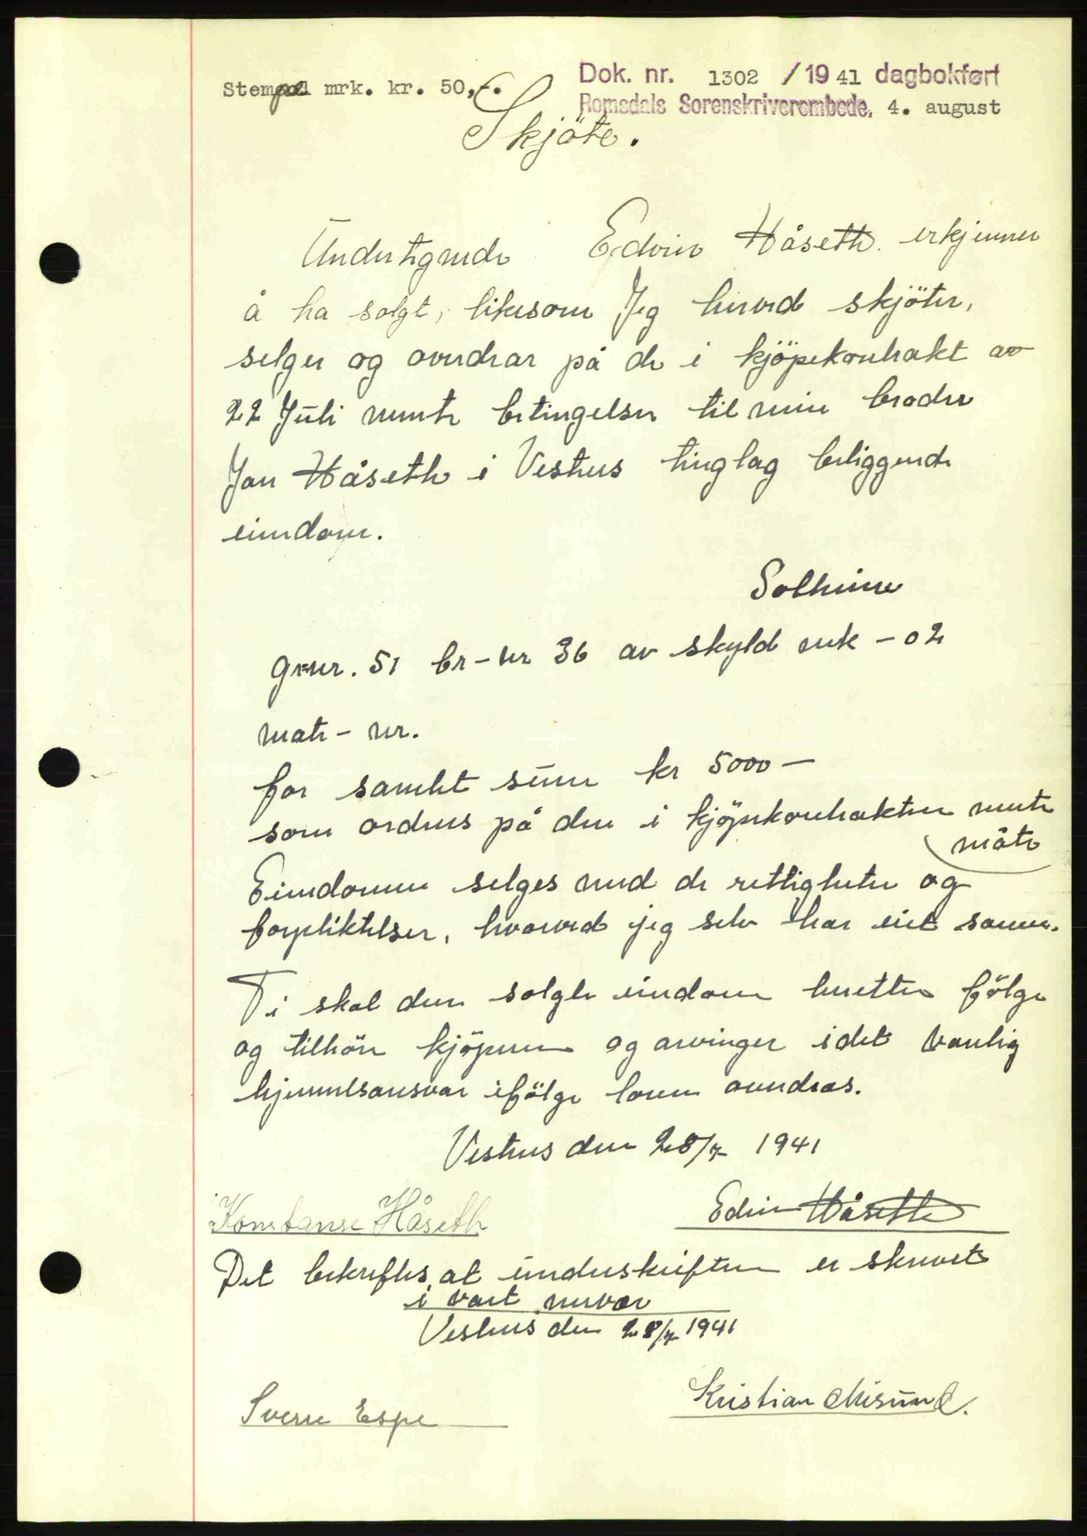 Stempel mrk. kr. 50,-.
Dok. nr. 1302 /1941 dagbokført
Romsdals Sorenskriverembede, 4. august
Skjöte.
Undertegnede Edvin Håseth erkjenner
å ha solgt, likesom Jeg herved skjöter,
selger og overdrar på de i kjöpekontrakt av
22 Juli nevnte betingelser til min broder
Jan Håseth i Vestnes tinglag beliggende
eiendom.
Solheim
grnr. 51 br-nr 36 av skyld mrk -02
matr-nr.
for samlet sum kr 5000-
som ordnes på den i kjöpekontrakten nevnte
måte
Eiendommen selges med de rettigheter og
forpliktelser, hvorved jeg selv har eiet samme.
Ti skal den solgte eiendom heretter fölge
og tilhöre kjöperen og arvinger idet vanlig
hjemmelsansvar ifölge loven overdras.
Vestnes den 28/7 1941
Konstanse Håseth
Edvin Håseth
Det bekreftes, at underskriften er skrevet
i vart nervær
Vestnes den 28/7 1941
Sverre Espe
Kristian Misund.